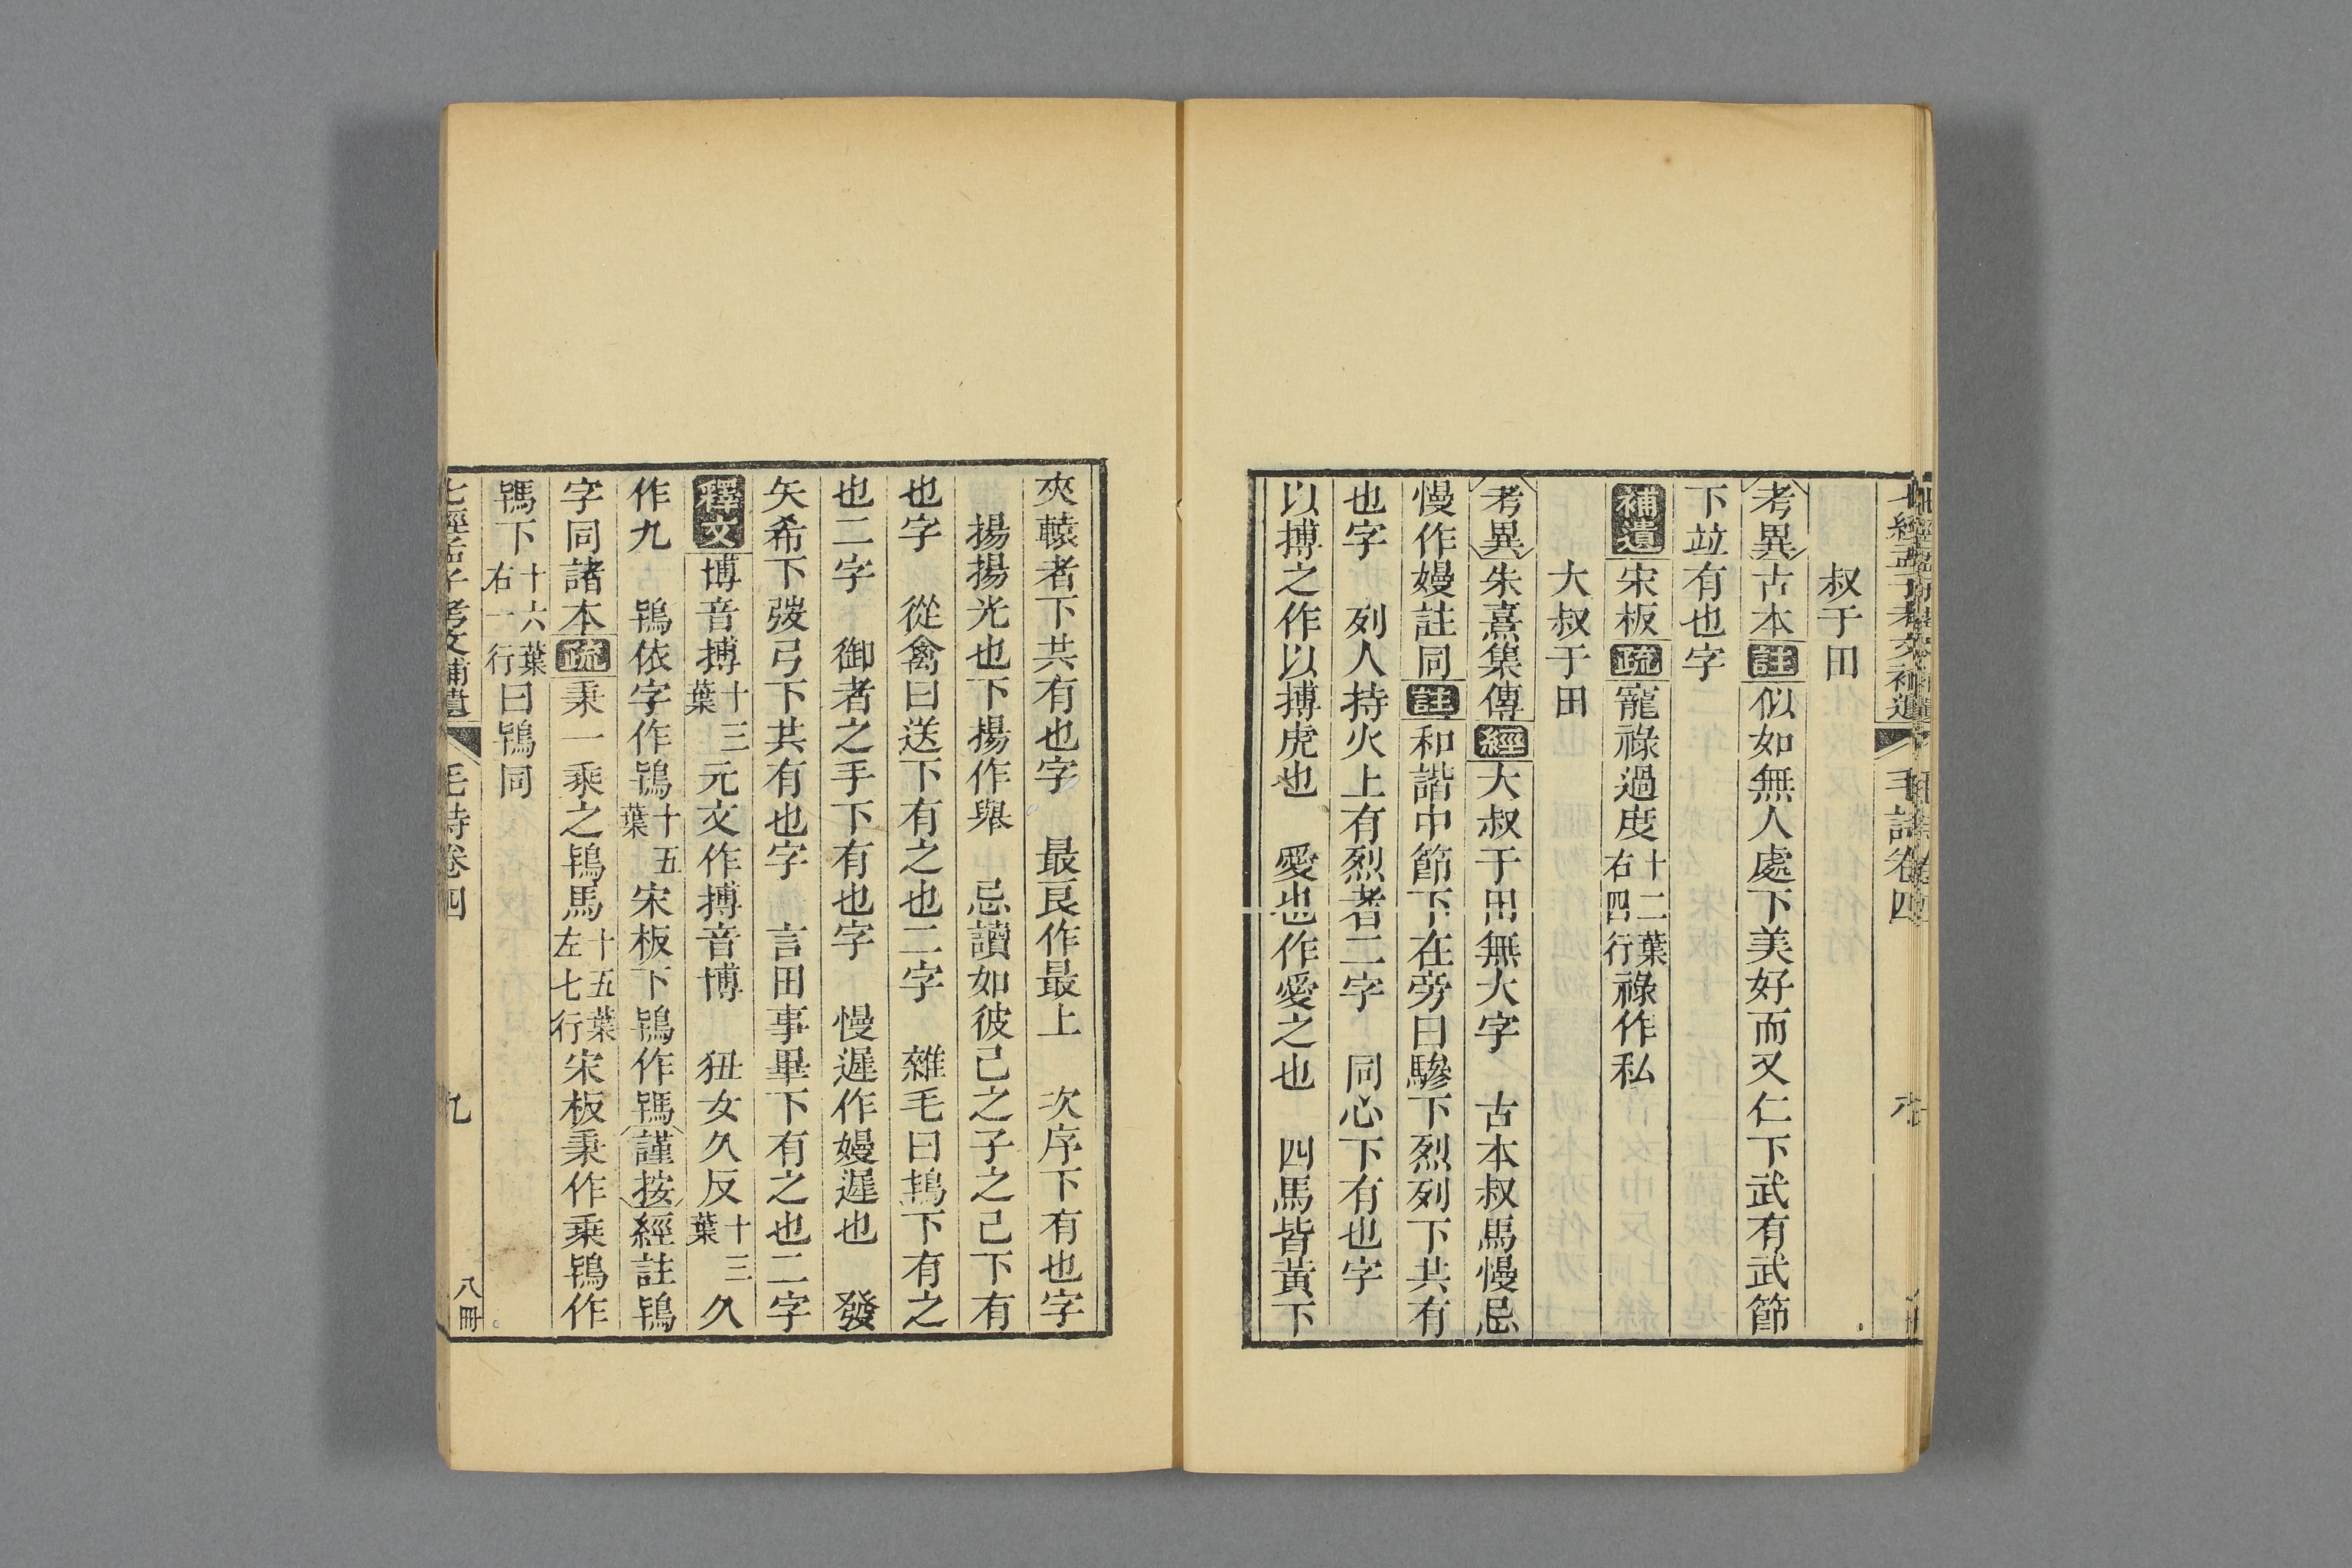 七經孟子考文補遺 毛詩卷四
叔于田
考異古本註似如無人處下美好而又仁下武有武節
下竝有也字
補遺宋板疏寵祿過度十二葉右四行祿作私
大叔于田
考異朱熹集傳經大叔于田無大字 古本叔馬慢忌
慢作嫚註同註和諧中節下在旁曰驂下烈列下共有
也字 列人持火上有烈者二字 同心下有也字
以搏之作以搏虎也 愛也作愛之也 四馬皆黃下
夾轅者下共有也字 最良作最上 次序下有也字
揚揚光也下揚作舉 忌讀如彼己之子之己下有
也字 從禽曰送下有之也二字 雜毛曰鴇下有之
也二字 御者之手下有也字 慢遲作嫚遲也 發
矢希下弢弓下共有也字 言田事畢下有之也二字
釋文博音搏十三葉元文作搏音博 狃女久反十三葉久
作九 鴇依字作鴇十五葉宋板下鴇作䮵謹按經註鴇
字同諸本疏秉一乘之鴇馬十五葉左七行宋板秉作乘鴇作
䮵下十六葉右一行曰鴇同
七經孟子考文補遺 毛詩卷四 九 八冊